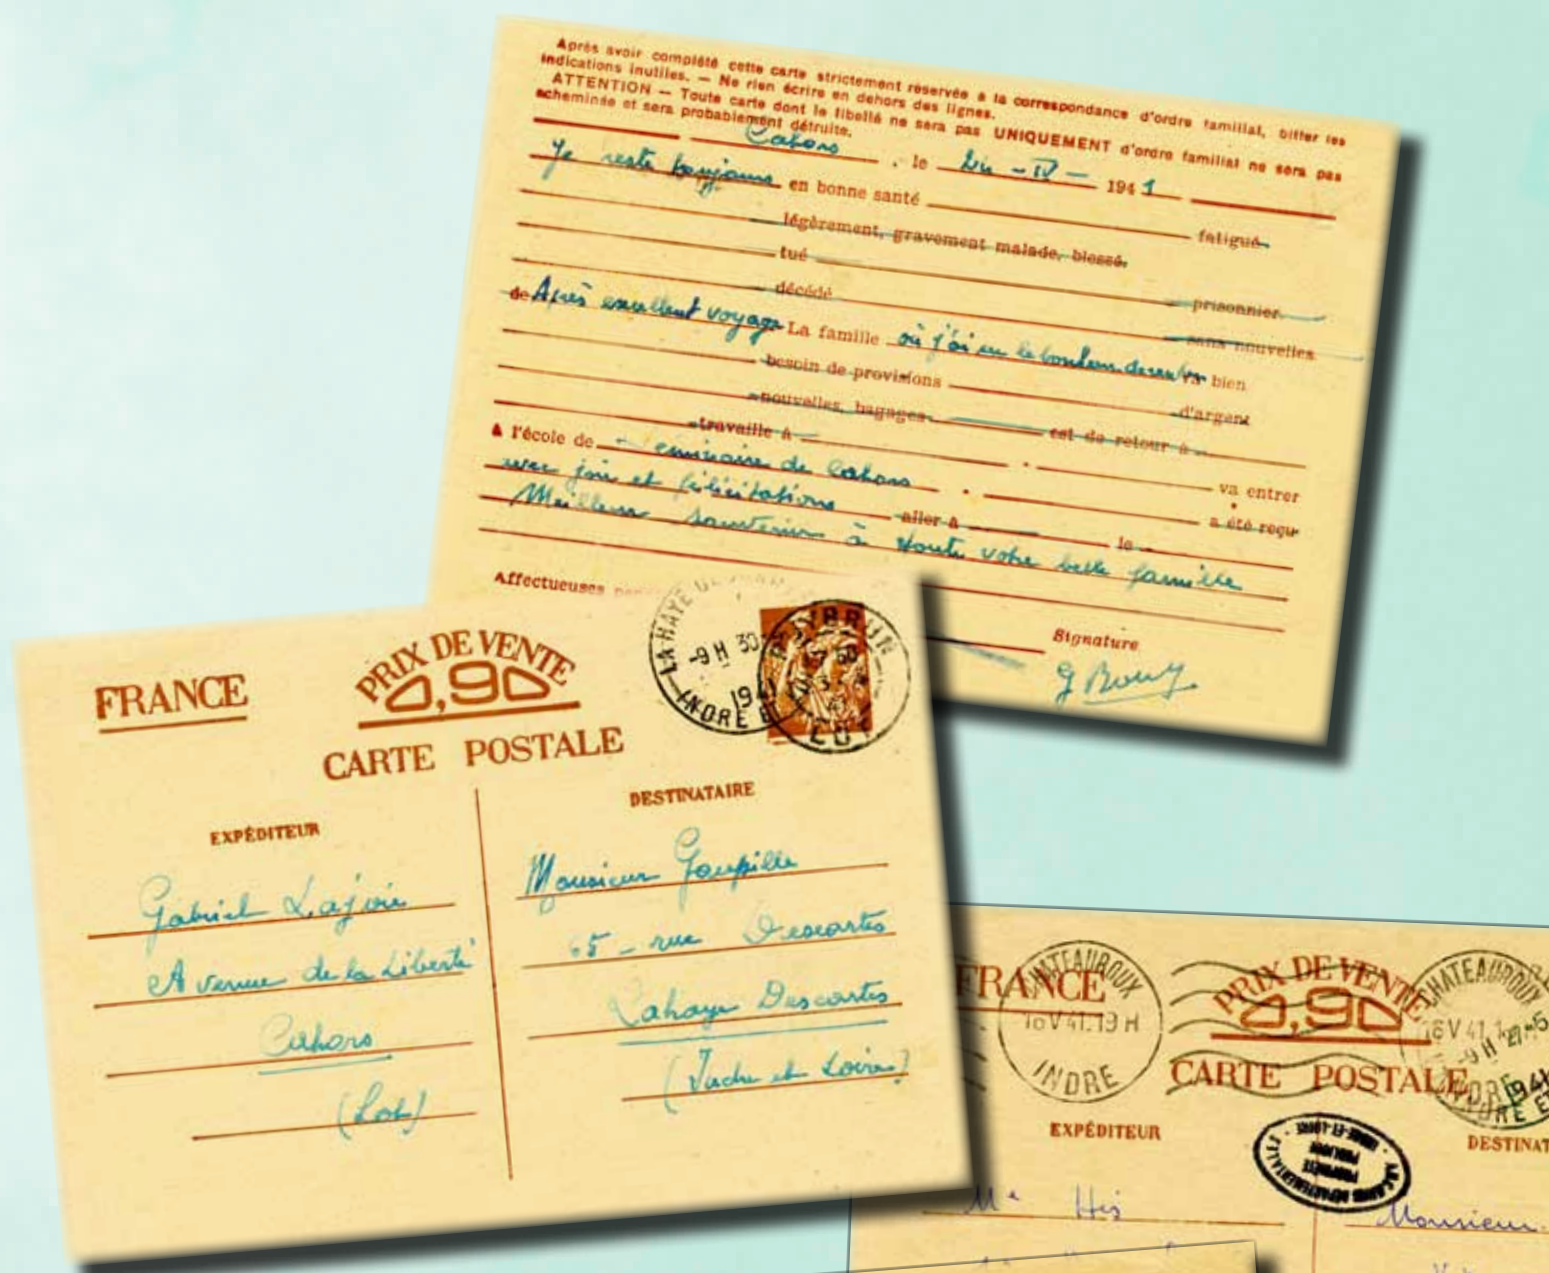 Après avoir complété cette carte strictement réservée à la correspondance d'ordre familial, biffer les
indications inutiles. — Ne rien écrire en dehors des lignes.
ATTENTION — Toute carte dont le libellé ne sera pas UNIQUEMENT d'ordre familial ne sera pas
acheminée et sera probablement détruite.
Cahors, le IV — 1941
Je reste toujours en bonne santé fatigué.
légèrement, gravement malade, blessé.
tué prisonnier
décédé sans nouvelles
de Après excellent voyage La famille où j'ai eu le bonheur va bien
besoin de provisions d'argent
nouvelles, bagages est de retour à
travaille à va entrer
à l'école de séminaire de Cahors a été reçu
avec joie et félicitations aller à le
Meilleur souvenir à toute votre belle famille
Affectueuses
Signature
FRANCE
PRIX DE VENTE
0,90
CARTE POSTALE
LA HAYE
-9 H 30
1941
INDRE ET
PUYBRUN
LOT
EXPÉDITEUR
Gabriel Lajoie
Avenue de la Liberté
Cahors
(Lot)
DESTINATAIRE
Monsieur Goupille
65 - rue Descartes
Lahaye Descartes
(Indre et Loire)
FRANCE
CHATEAUROUX
16 V 41. 19 H
INDRE
PRIX DE VENTE
0,90
CARTE POSTALE
CHATEAUROUX
EXPÉDITEUR
DESTINAT
His
Monsieur